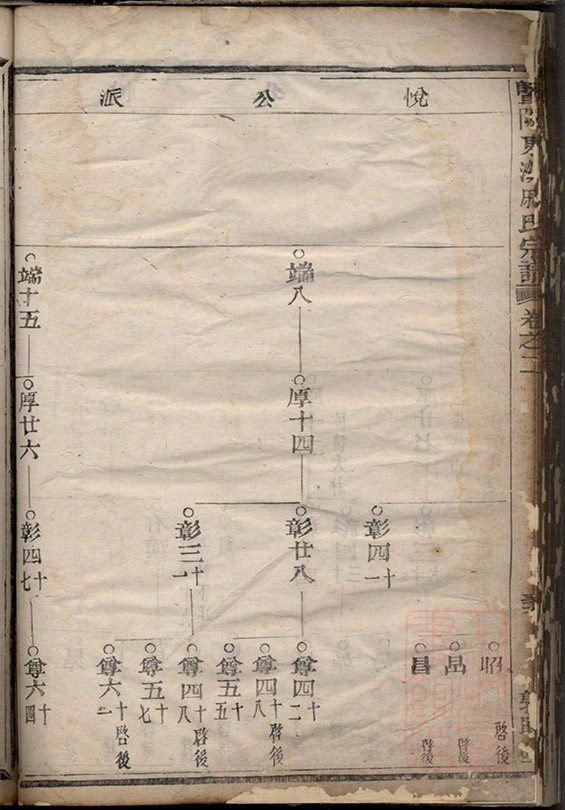 暨陽東 氏宗譜 卷之二
悅公派
彰四十一
昭 啓後
啓後
昌 啓後
端八
厚十四
彰廿八
尊四十二
尊四十八 啓後
尊五十五
彰三十一
尊四十八 啓後
尊五十七
尊六十二 啓後
端十五
厚廿六
彰四十七
尊六十四